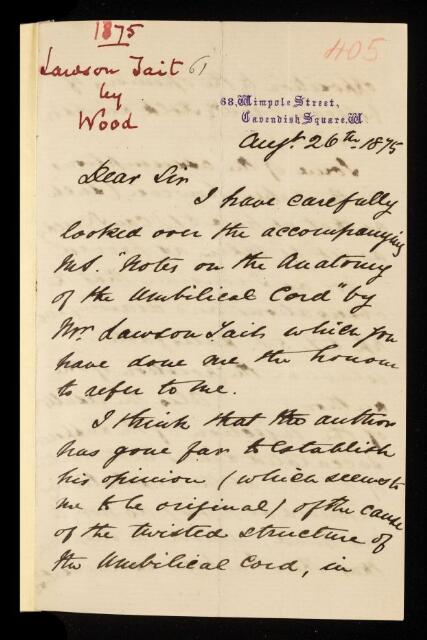 1875
405
Lawson Tait 61
by
Wood
68, Wimpole Street,
Cavendish Square. W.
Augt. 26th 1875
Dear Sir
I have carefully
looked over the accompanying
MS. "Notes on the Anatomy
of the Umbilical Cord" by
Mr. Lawson Tait which you
have done me the honour
to refer to me.
I think that the author
has gone far to establish
his opinion (which seems to
me to be original) of the cause
of the twisted structure of
the Umbilical Cord, in